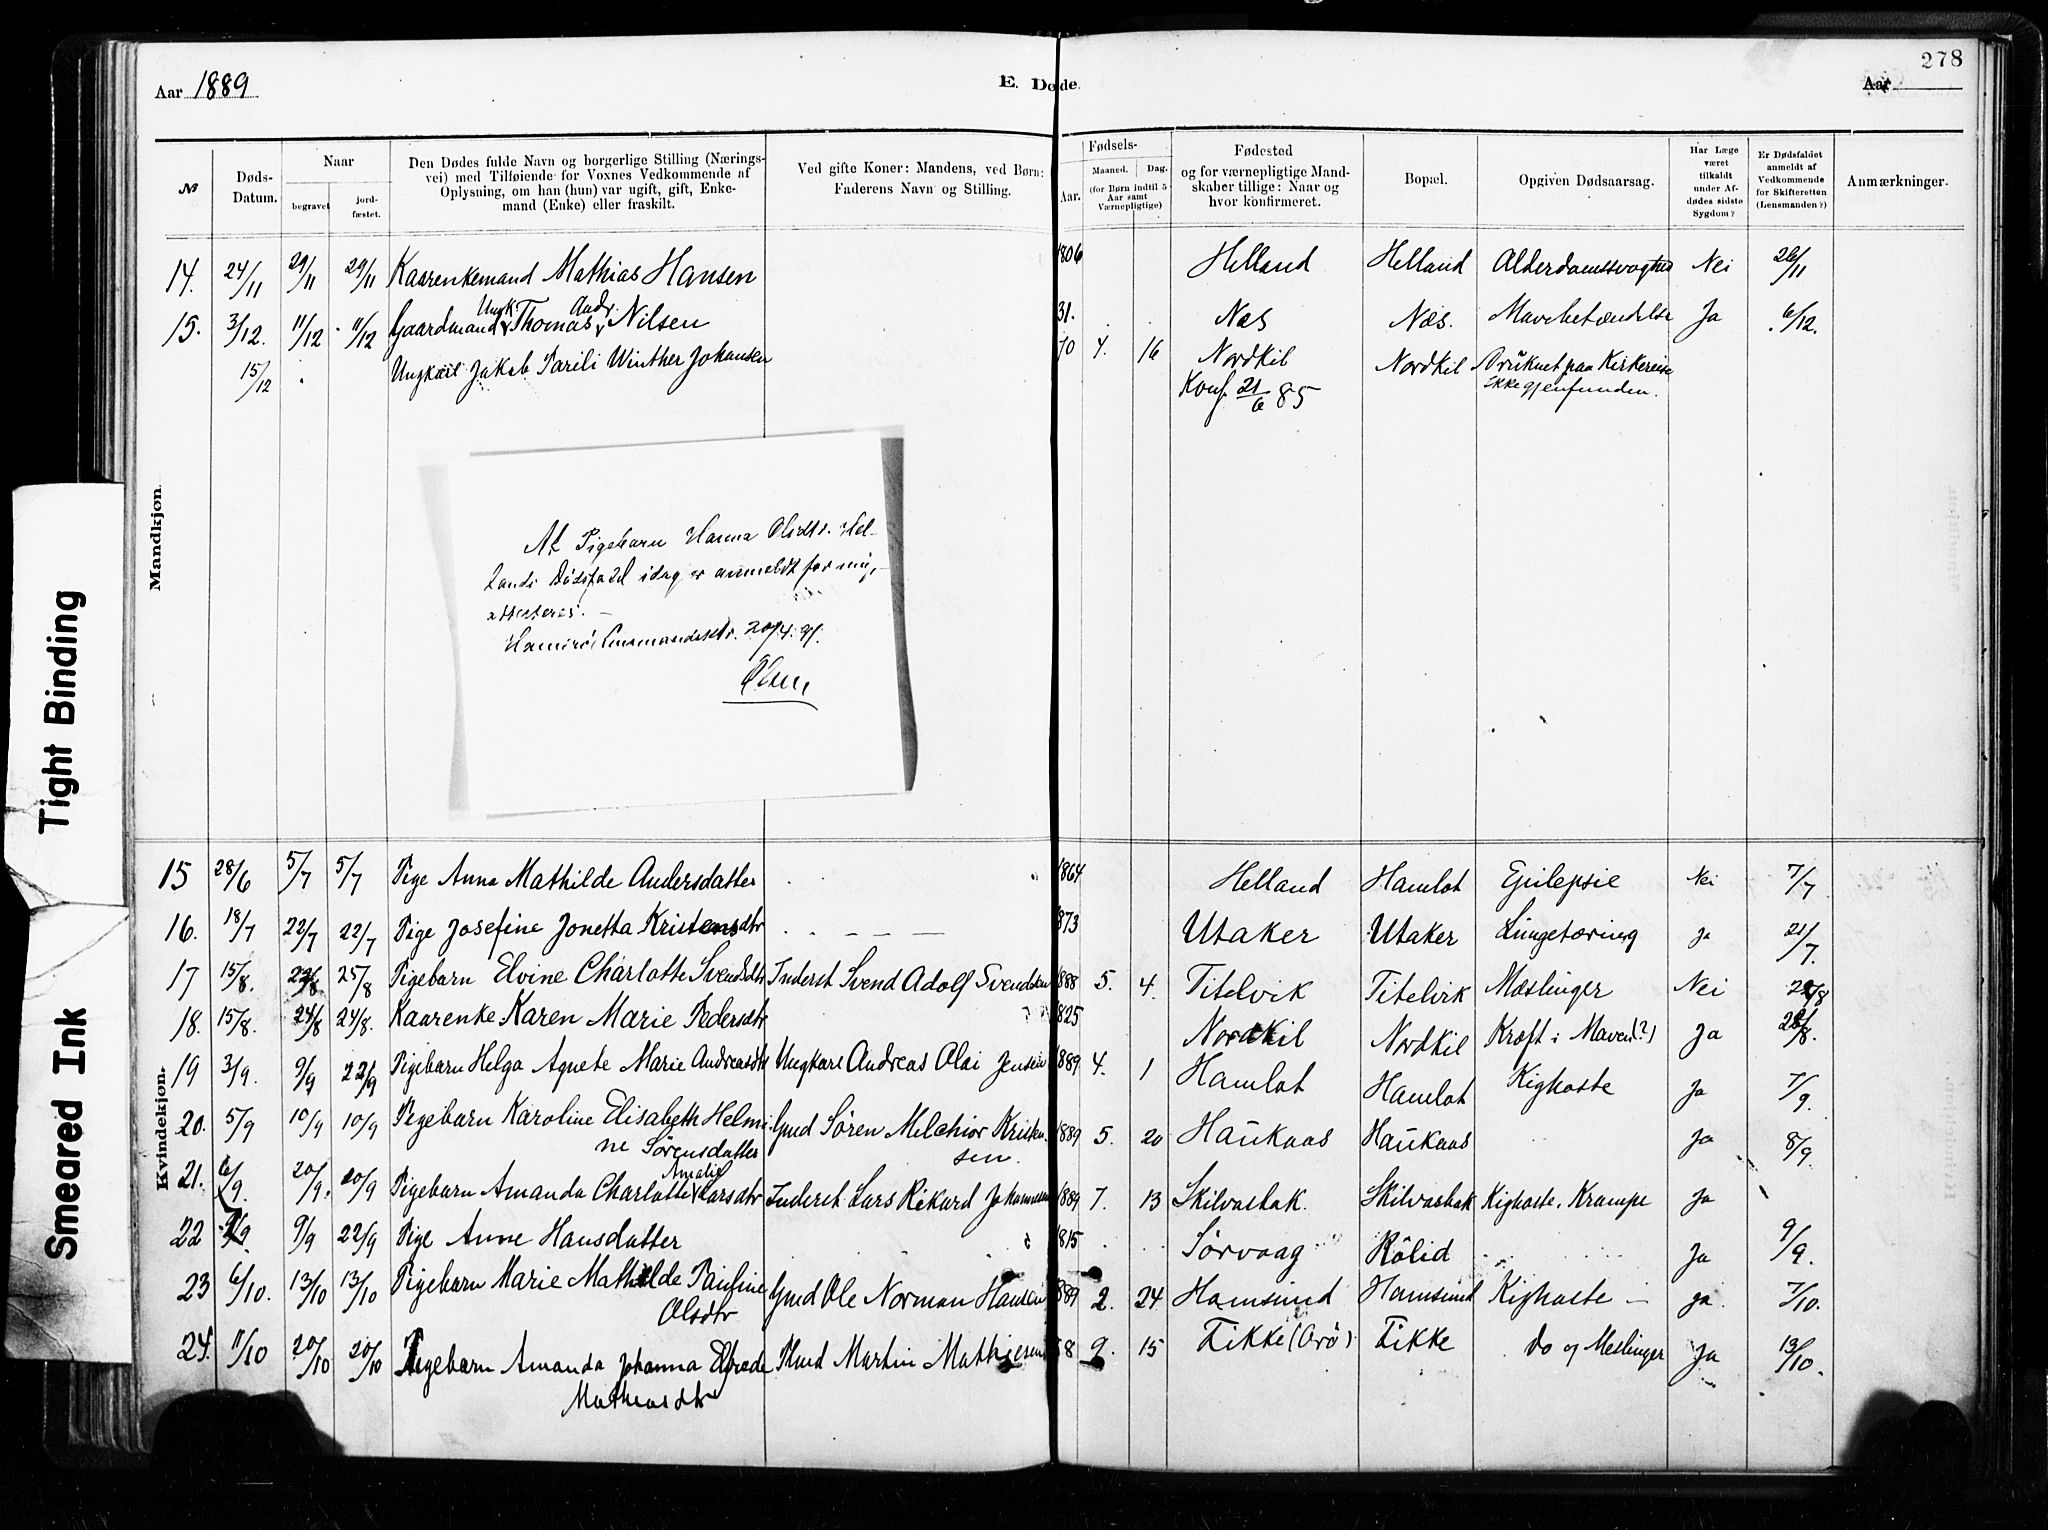 278
Aar 1889
E. Døde.
Aar
№
Døds-Datum.
Naar
begravet
jord-fæstet.
Den Dødes fulde Navn og borgerlige Stilling (Nærings-
vei) med Tilføiende for Voxnes Vedkommende af
Oplysning, om han (hun) var ugift, gift, Enke-
mand (Enke) eller fraskilt.
Ved gifte Koner: Mandens, ved Børn:
Faderens Navn og Stilling.
Fødsels-
Aar.
Maaned. Dag.
(for Børn indtil 5
Aar samt
Værnepligtige)
Fødested
og for værnepligtige Mand-
skaber tillige: Naar og
hvor konfirmeret.
Bopæl.
Opgiven Dødsaarsag.
Har Læge
været
tilkaldt
under Af-
dødes sidste
Sygdom?
Er Dødsfaldet
anmeldt af
Vedkommende
for Skifteretten
(Lensmanden?)
Anmærkninger.
Mandkjøn.
14. 24/11 29/11 29/11 Kaarenkemand Mathias Hansen 1806 Helland Helland Alderdomssvaghed Nei 26/11
Ungk. Andr.
15. 3/12. 11/12 11/12 Gaardmand Thomas Nilsen 31. Næs Næs. Mavebetændelse Ja 6/12.
15/12 Ungkarl Jakob Parili Winther Johansen 70 4. 16 Nordkil Nordkil Druknet paa Kirkereise
Konf. 21/6 85 ikke gjenfunden.
At Pigebarn Hanna Olsdtr. Hel-
lands Dødsfald idag er anmeldt for mig,
attesteres.
Hamerø Lensmandsktr. 20/4 91.
Kvindekjøn.
15 28/6 5/7 5/7 Pige Anna Mathilde Andersdatter 1864 Helland Hamlot Epilepsie Nei 7/7
16. 18/7 22/7 22/7 Pige Josefine Jonetta Kristensdtr 873 Utaker Utaker Lungetæring ja 21/7.
17 15/8. 22/8 25/8 Pigebarn Elvine Charlotte Svendsdtr Inderst Svend Adolf Svendsen 1888 5. 4. Titelvik Titelvik Mæslinger Nei 22/8
18. 15/8. 24/8 24/8. Kaarenke Karen Marie Pedersdtr 1825 Nordkil Nordkil Kræft i Maven(?) Ja 28/8.
19 3/9. 9/9 22/9 Pigebarn Helga Agnete Marie Andreasdtr Ungkarl Andreas Olai Jensen 1889 4. 1 Hamlot Hamlot Kighoste Ja 7/9.
20. 5/9 10/9 10/9 Pigebarn Karoline Elisabeth Helmi- Gmd Sören Melchior Kristen- 1889 5. 20 Haukaas Haukaas Ja 8/9.
ne Sörensdatter sen.
Amalie
21. 6/9. 20/9. 20/9 Pigebarn Amanda Charlotte Larsdtr Inderst Lars Rikard Johannesen 1889 7. 13 Skilvasbak. Skilvasbak Kighoste, Krampe Ja
22 9/9 22/9 Pige Anne Hansdatter 1815 Sörvaag Rölid Ja 9/9.
23 6/10. 13/10 13/10 Pigebarn Marie Mathilde Pauline Gmd Ole Norman Hansen 1889 2. 24 Hamsund Hamsund Kighoste ja. 7/10.
Olsdtr
24. 11/10 20/10 20/10 Pigebarn Amanda Johanna Elfrede Plmd Martin Mathiesen 88 9. 15 Tikke (Arö) Tikke do og Meslinger Ja 13/10.
Mathiasdtr
Tight Binding
Smeared Ink